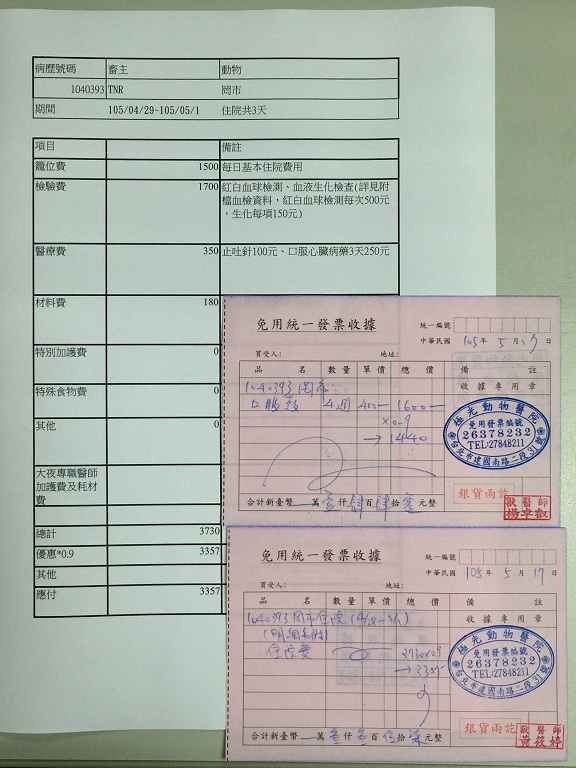 病歷號碼 畜主 動物
1040393 TNR 罔市
期間 105/04/29~105/05/1 住院共3天
項目 備註
籠位費 1500 每日基本住院費用
檢驗費 1700 紅白血球檢測、血液生化檢查(詳見附
檔血檢資料，紅白血球檢測每次500元
，生化每項150元)
醫療費 350 止吐針100元、口服心臟病藥3天250元
材料費 180
特別加護費 0
特殊食物費 0
其他 0
大夜專職醫師
加護費及耗材
費
總計 3730
優惠*0.9 3357
其他
應付 3357
免用統一發票收據
統一編號
中華民國 105年 5月 17日
買受人： 地址：
品名 數量 單價 總價 備註
收據專用章
1040393
口服藥 4週 400 1600
x0.9
→ 1440
極光動物醫院
免用發票編號
26378232
TEL:27848211
台北市建國南路二段31號
銀貨兩訖
合計新臺幣 萬壹仟肆百肆拾零元整
獸醫師
楊卓叡
免用統一發票收據
統一編號
中華民國 105年 5月 17日
買受人： 地址：
品名 數量 單價 總價 備註
收據專用章
1040393 罔市住院
住院費 3730x0.9
→ 3357
極光動物醫院
免用發票編號
26378232
TEL:27848211
台北市建國南路二段31號
銀貨兩訖
合計新臺幣 萬叁仟叁百伍拾柒元整
獸醫師
黃筱婷